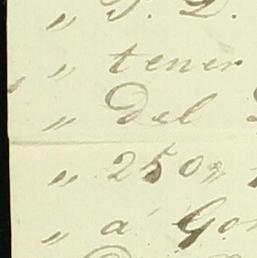 " D. D.
" tener
" Del
" 250,,
" a Gon